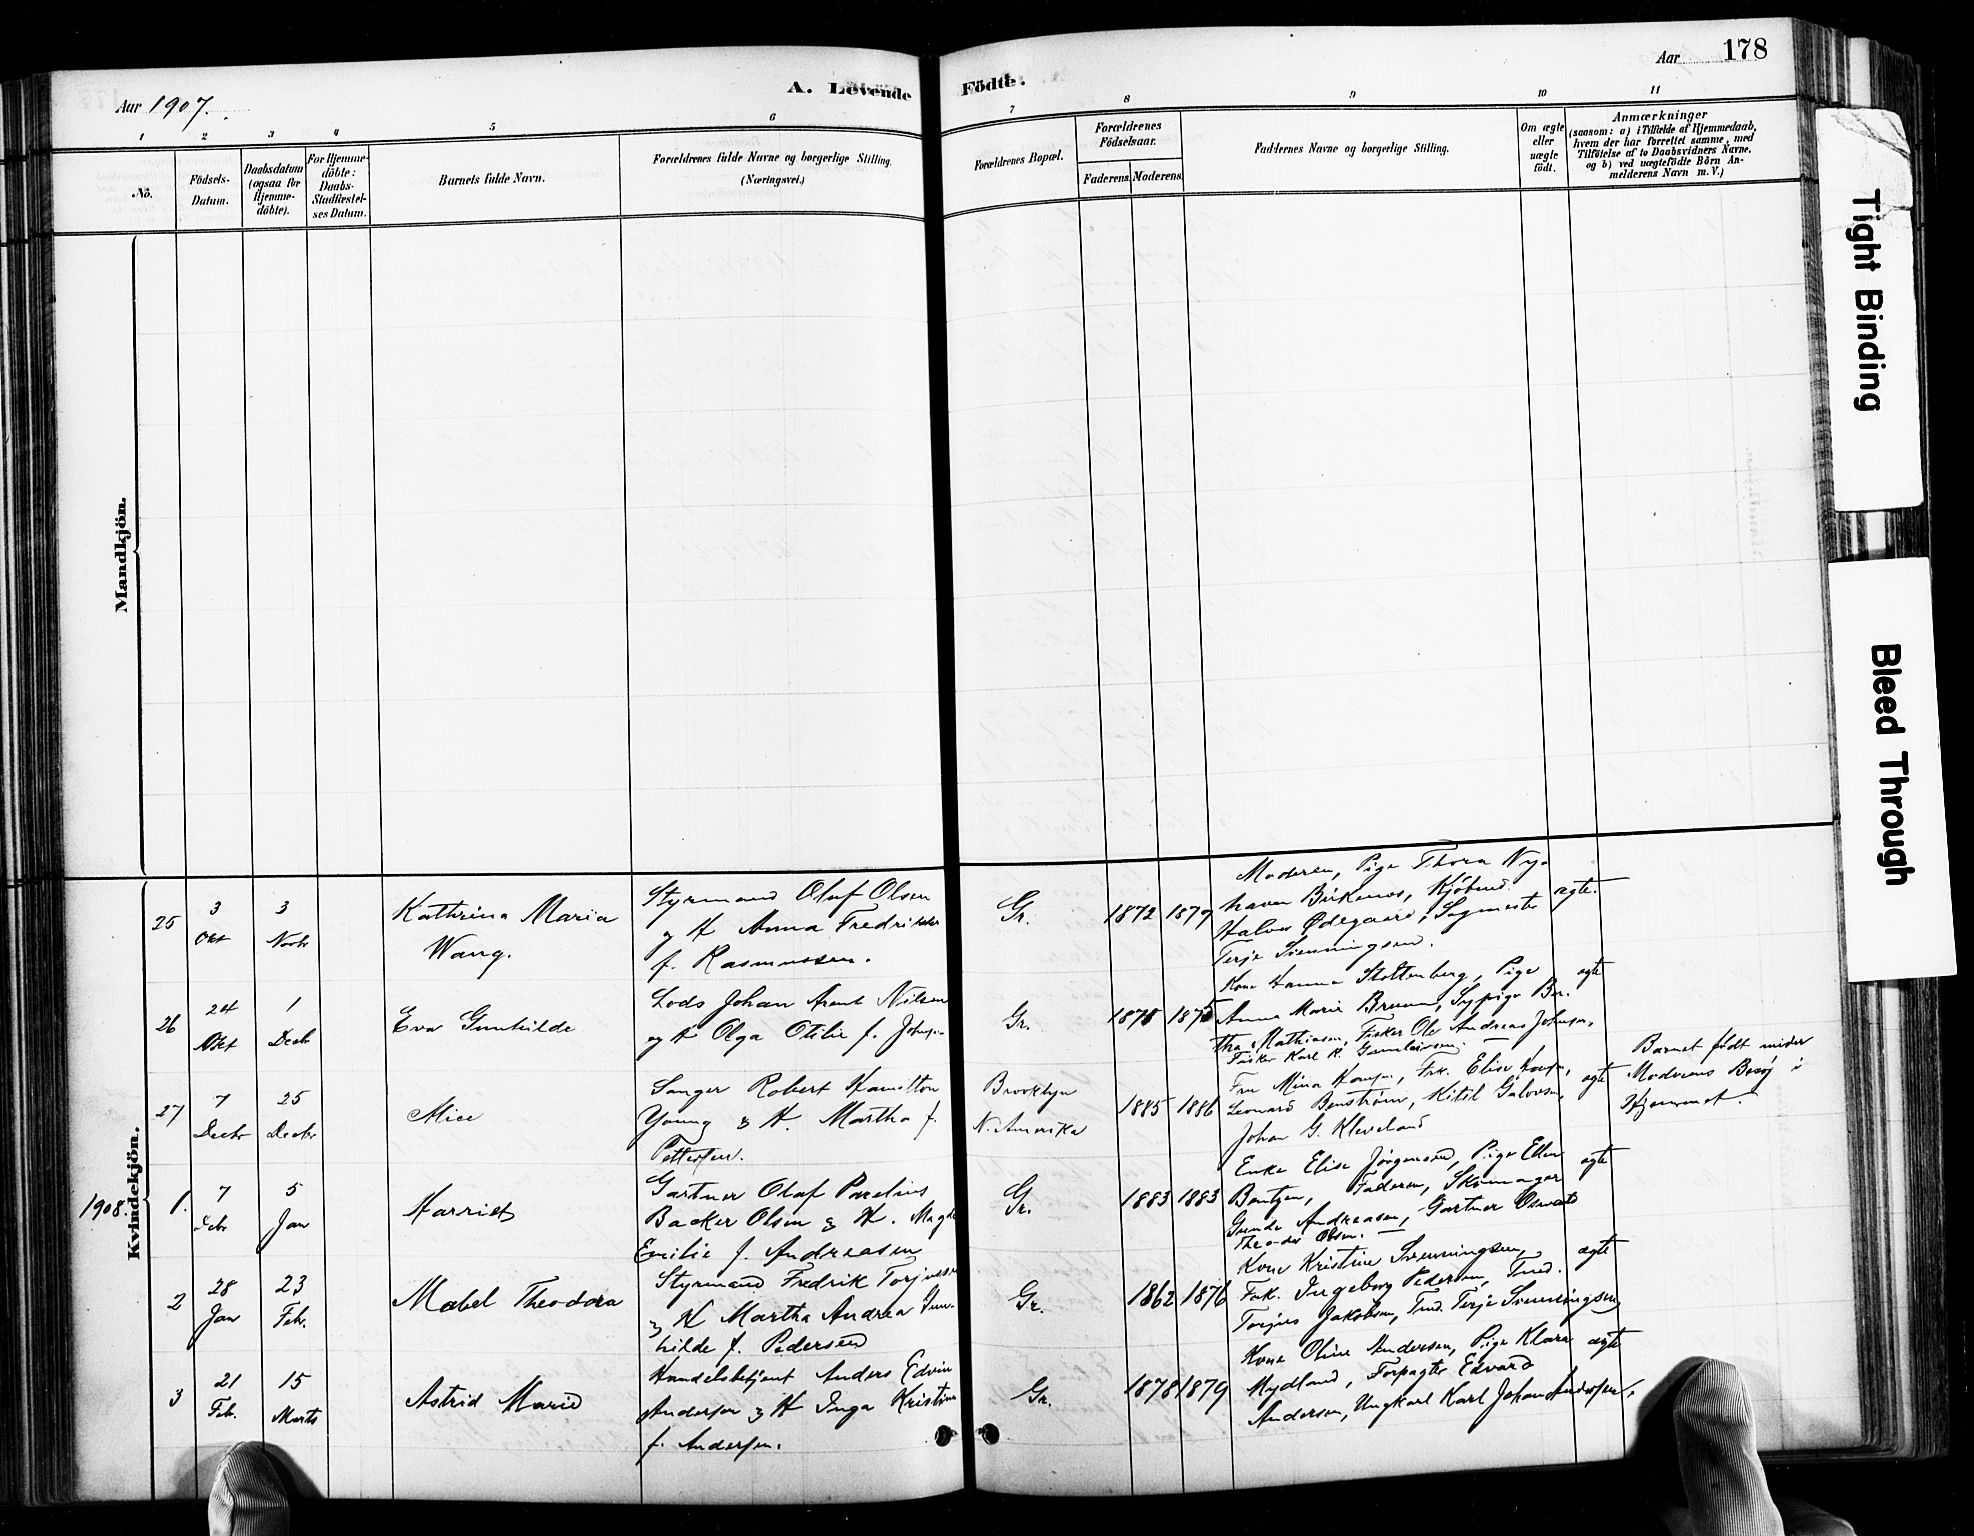 Aar 1907.
A. Levende Födte.
Aar 178
1 2 3 4 5 6 7 8 9 10 11
No.
Födsels-Datum.
Daabsdatum (ogsaa for Hjemme-döbte).
For Hjemme-döbte: Daabs-Stadfæstel-ses Datum.
Barnets fulde Navn.
Forældrenes fulde Navne og borgerlige Stilling.
(Næringsvei.)
Forældrenes Bopæl.
Forældrenes Födselsaar.
Faderens. Moderens.
Faddernes Navne og borgerlige Stilling.
Om ægte eller uægte födt.
Anmærkninger
(saasom: a) i Tilfælde af Hjemmedaab,
hvem der har forrettet samme, med
Tilföielse af to Daabsvidners Navne.
og b) ved uægtefödte Börn An-
melderens Navn m. V.)
Mandkjön.
Kvindekjön.
25
3 Okt
3 Novbr
Kathrina Maria
Wang.
Styrmand Oluf Olsen
og H Anna Fredrikke
f. Rasmussen.
Gr.
1872 1879
Moderen, Pige Thora Ny-
haven Birkenes, Kjöbmd.
Halvor Ødegaard, Sagmester
Terje Svenningsen.
ægte.
26
24 Okt
1 Decbr
Eva Gunhilde
Lods Johan Arent Nilsen
og H Olga Otilie f. Johns.
Gr.
1875 1875
Kone Hanna Stoltenberg, Pige
Anna Marie Bruun, Sypige Ber-
tha Mathiasen, Fisker Ole Andreas Johnsen,
Fisker Karl R. Gunleivsen.
ægte
27
7 Decbr
25 Decbr
Alice
Sanger Robert Hamilton
Young & H. Martha f.
Pettersen.
Brooklyn
N. Amerika
1885 1886
Fru Mina , Frk. Elise ,
Leonard Benström, Kitil Galvosen,
Johan G. Kleveland
ægte
Barnet födt under
Moderens Besög i
Hjemmet.
1908.
1.
7 Decbr
5 Jan
Harriet
Gartner Olaf Parelius
Backer Olsen & H. Magda
Emilie f. Andreasen
Gr.
1883 1883
Enke Elise Jörgensen, Pige Ellen
Bentzen, Faderen, Skomager
Gunde Andreasen, Gartner Osvald
Theodor Olsen.
ægte
2
28 Jan
23 Feb.
Mabel Theodora
Styrmand Fredrik Torjusen
& H Martha Andrea Gun-
hilde f. Pedersen
Gr.
1862 1876
Kone Kristine Svenningsen,
Frk. Ingeborg Pedersen, Tmd.
Torjus Jakobsen, Tmd. Terje Svenningsen
ægte
3
21 Feb.
15 Marts
Astrid Marie
Handelsbetjent Anders Edvin
Andersen & H Inga Kristine
f. Andersen.
Gr.
1878 1879
Kone Oline Andersen, Pige Klara
Mydland, Forpagter Edvard
Andersen, Ungkarl Karl Johan Andersen.
ægte
Tight Binding
Bleed Through